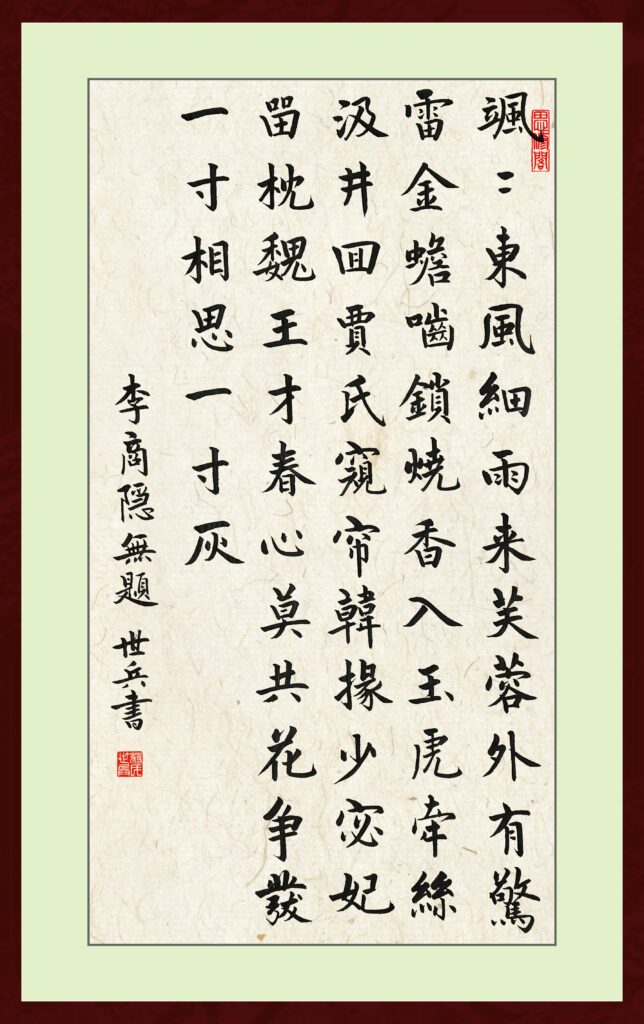 颯〻東風細雨来芙蓉外有驚
雷金蟾噛鎖燒香入玉虎牵絲
汲井囬賈氏窺帘韓掾少宓妃
留枕魏王才春心莫共花争發
一寸相思一寸灰
李商隐無題 世兵書